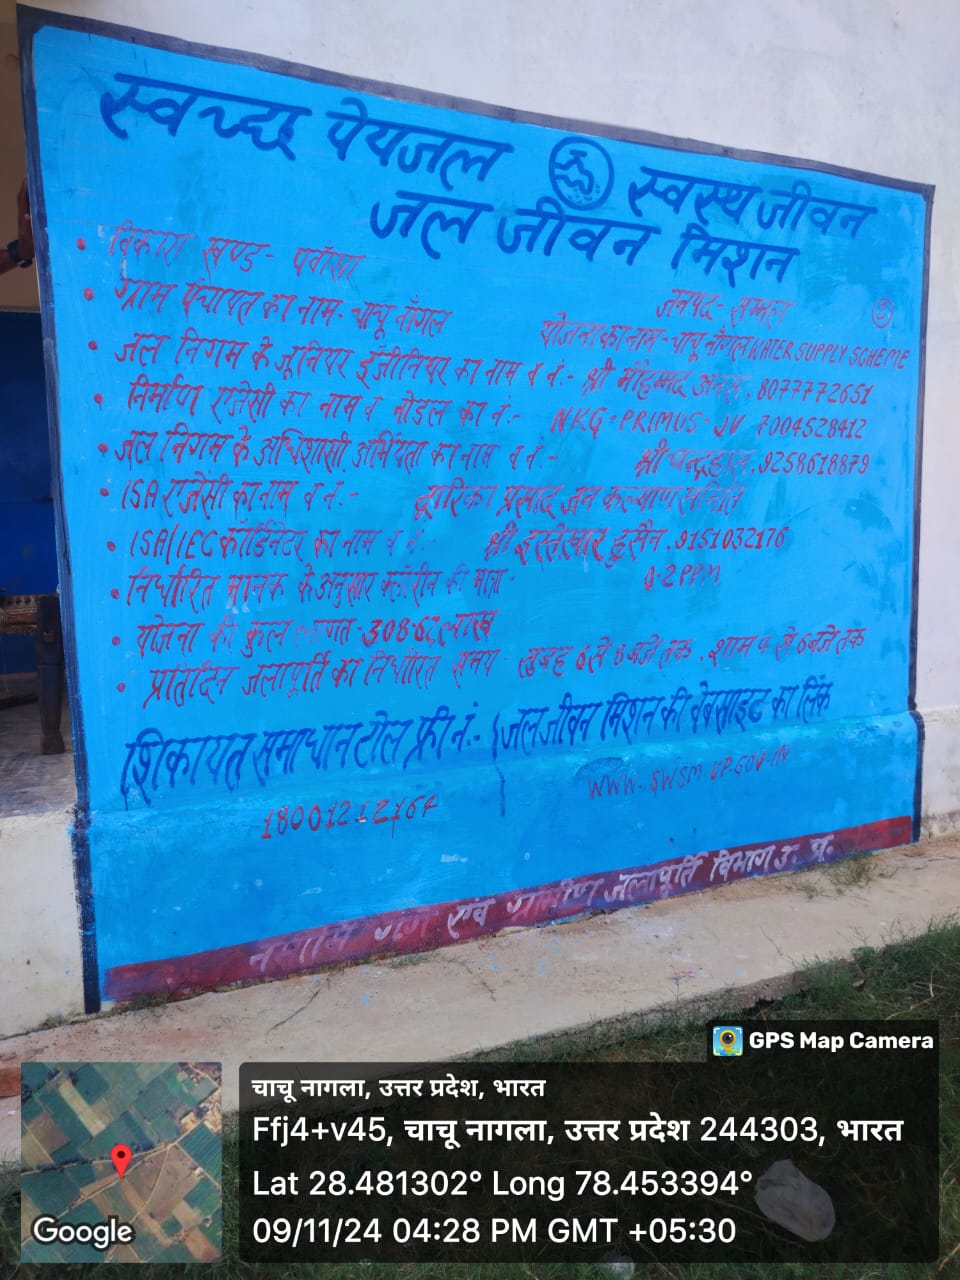 स्वच्छ पेयजल स्वस्थ जीवन
जल जीवन मिशन
विकास खण्ड - पवाँसा
जनपद - सम्भल
ग्राम पंचायत का नाम - चाचू नाँगल
योजना का नाम - चाचू नाँगल WATER SUPPLY SCHEME
जल निगम के जूनियर इंजीनियर का नाम व नं:- श्री मोहम्मद अनस, 8077772651
निर्माण एजेंसी का नाम व नोडल का नं:- NKG-PRIMUS-JV 7004528412
जल निगम के अधिशासी अभियंता का नाम व नं:- श्री चन्द्रहास, 9258618879
ISA एजेंसी का नाम व नं:- द्वारिका प्रसाद जन कल्याण समिति
ISA/IEC कॉर्डिनेटर का नाम व नं: श्री इस्तेखार हुसैन, 9151032176
निर्धारित मानक के अनुसार क्लोरीन की मात्रा - 0.2 PPM
योजना की कुल लागत - 308.62 लाख
प्रतिदिन जलापूर्ति का निर्धारित समय - सुबह 6 से 8 बजे तक, शाम 4 से 6 बजे तक
शिकायत समाधान टोल फ्री नं:-
18001212164
जल जीवन मिशन की वेबसाइट का लिंक
WWW.SWSM.UP.GOV.IN
नमामि गंगे एवं ग्रामीण जलापूर्ति विभाग उ. प्र.
GPS Map Camera
चाचू नागला, उत्तर प्रदेश, भारत
Ffj4+v45, चाचू नागला, उत्तर प्रदेश 244303, भारत
Lat 28.481302° Long 78.453394°
09/11/24 04:28 PM GMT +05:30
Google